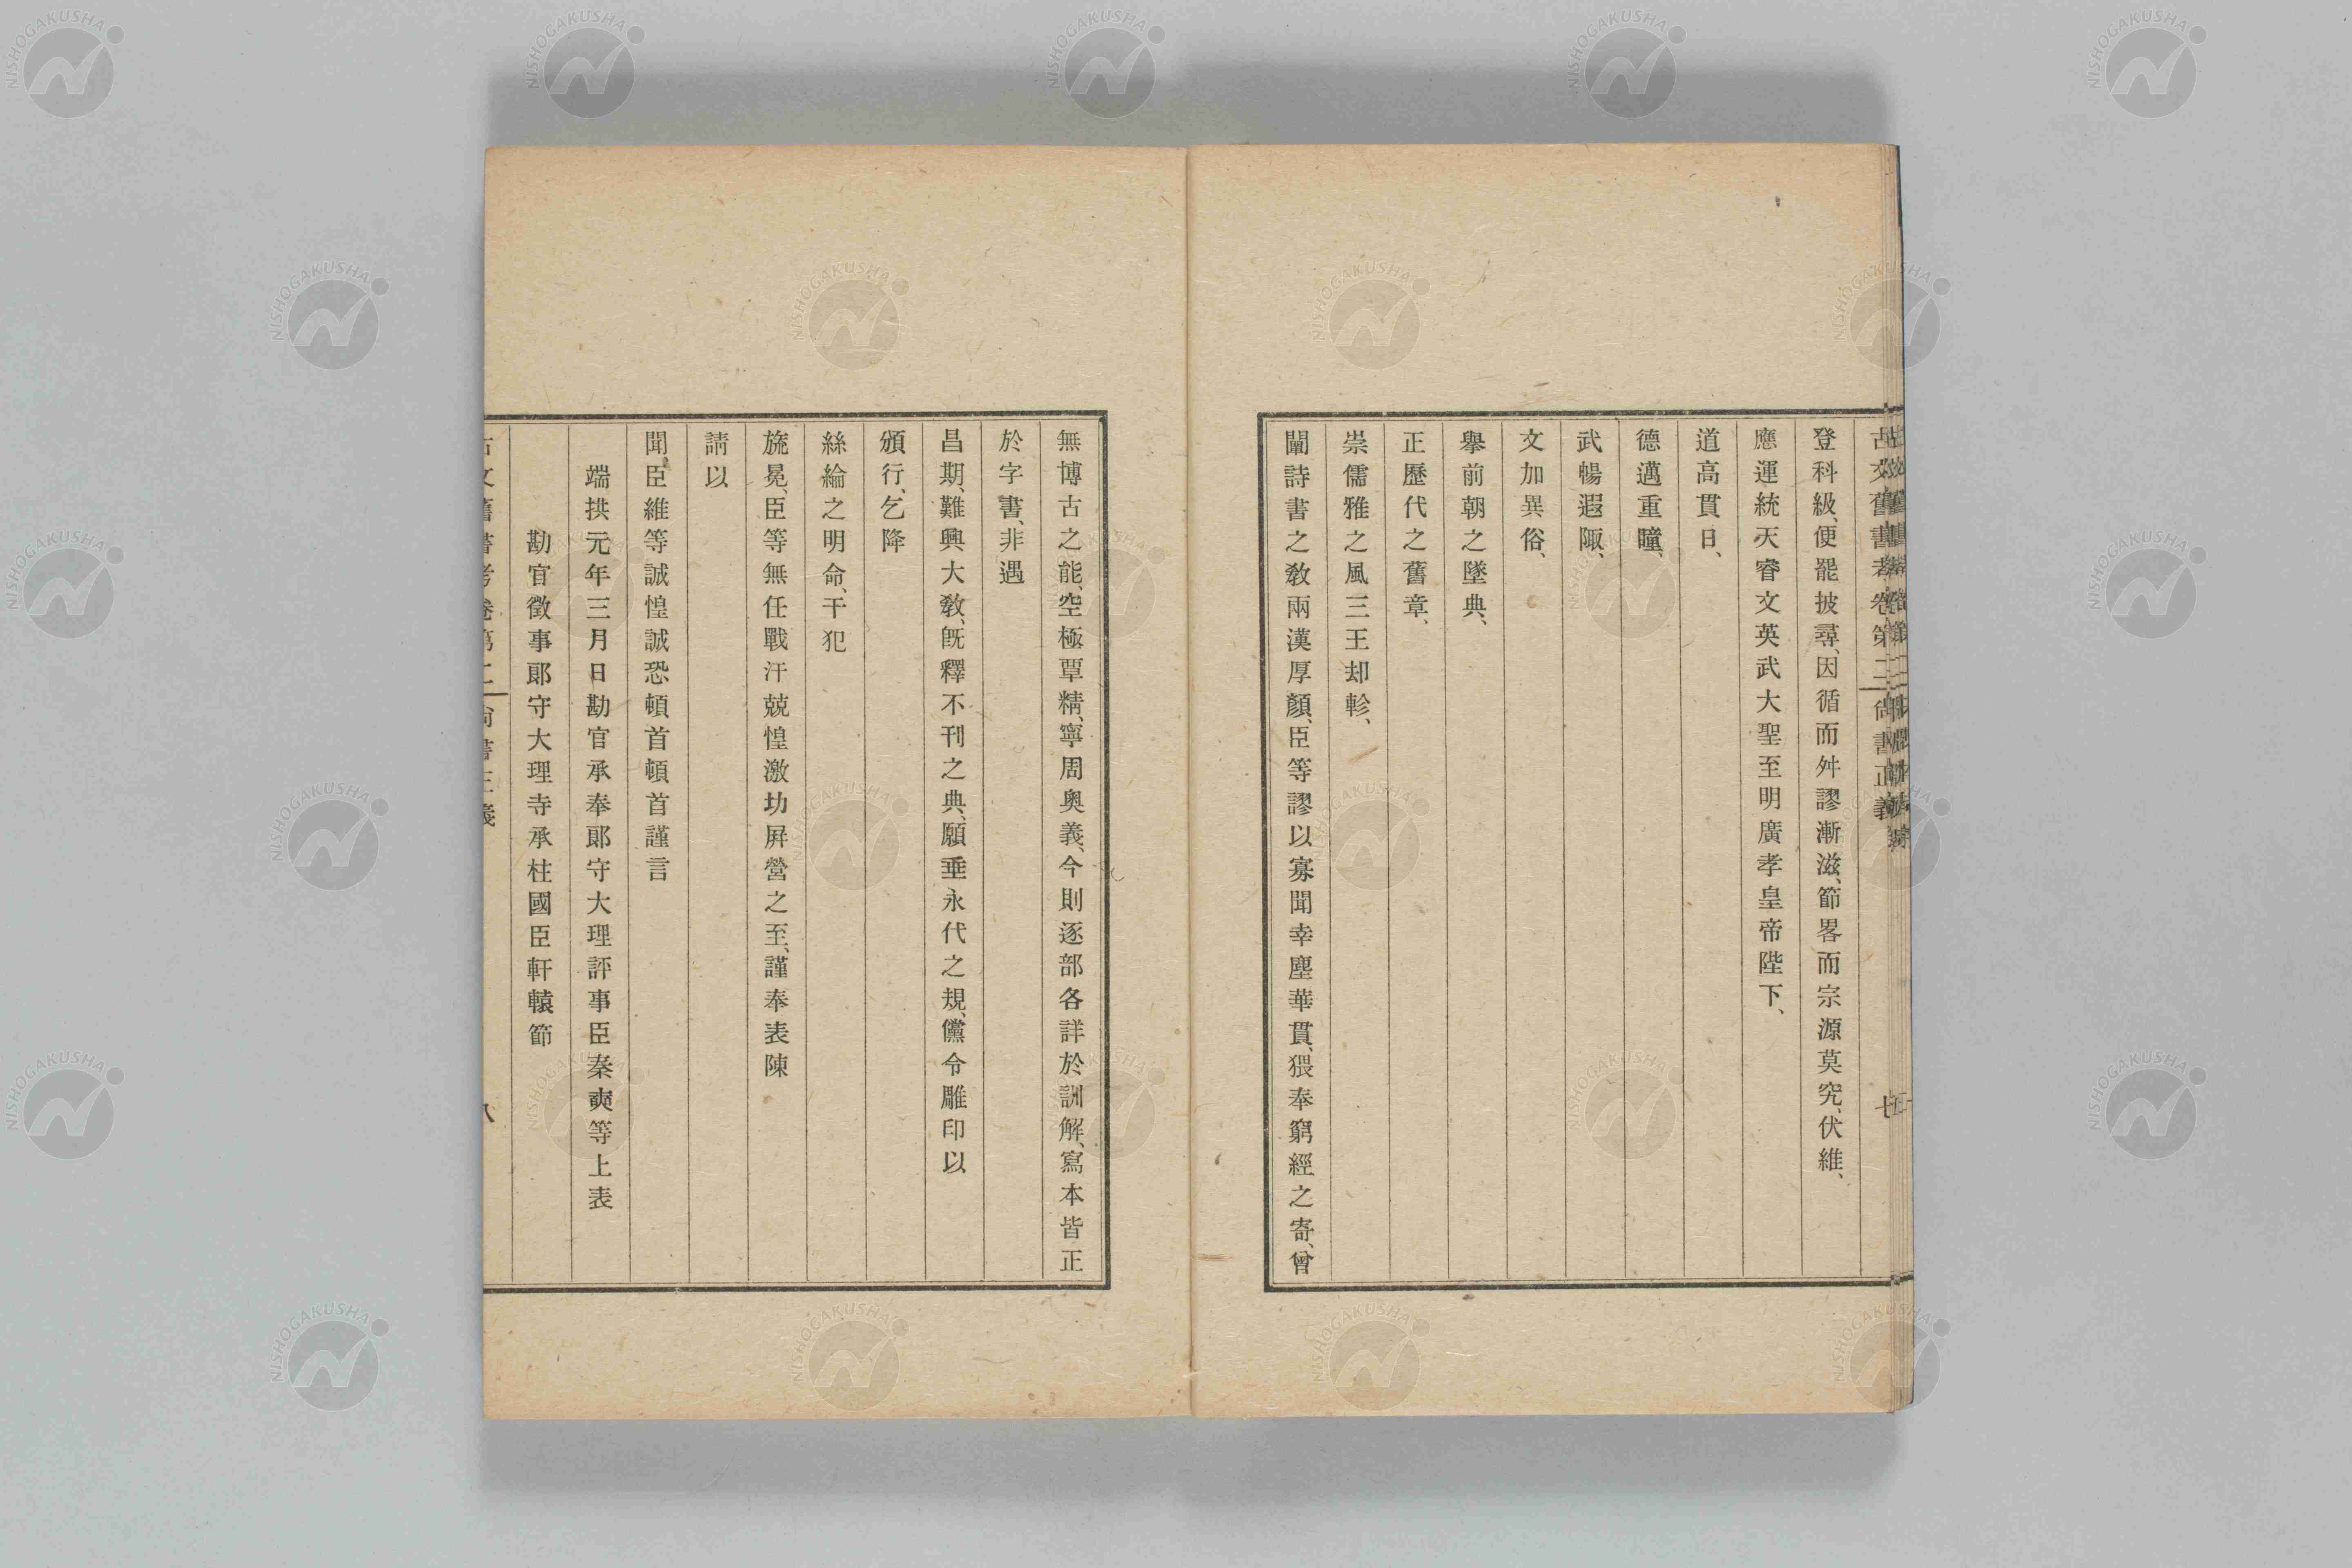 古文舊書考卷第二 尙書正義 七
登科級、便罷披尋、因循而舛謬漸滋、節畧而宗源莫究、伏維、
應運統天睿文英武大聖至明廣孝皇帝陛下、
道高貫日、
德邁重瞳、
武暢遐陬、
文加異俗、
擧前朝之墜典、
正歷代之舊章、
崇儒雅之風三王却軫、
闡詩書之敎兩漢厚顏、臣等謬以寡聞幸塵華貫、猥奉窮經之寄、曾
無博古之能、空極覃精、寧周奧義、今則逐部各詳於訓解、寫本皆正
於字書、非遇
昌期、難興大敎、旣釋不刊之典、願垂永代之規、儻令雕印以
頒行、乞降
絲綸之明命、干犯
旒冕、臣等無任戰汗兢惶激功屛營之至、謹奉表陳
請以
聞、臣維等誠惶誠恐頓首頓首謹言
端拱元年三月日勘官承奉郞守大理評事臣秦奭等上表
勘官徵事郞守大理寺承柱國臣軒轅節
古文舊書考卷第二 尙書正義 八
NISHOGAKUSHA